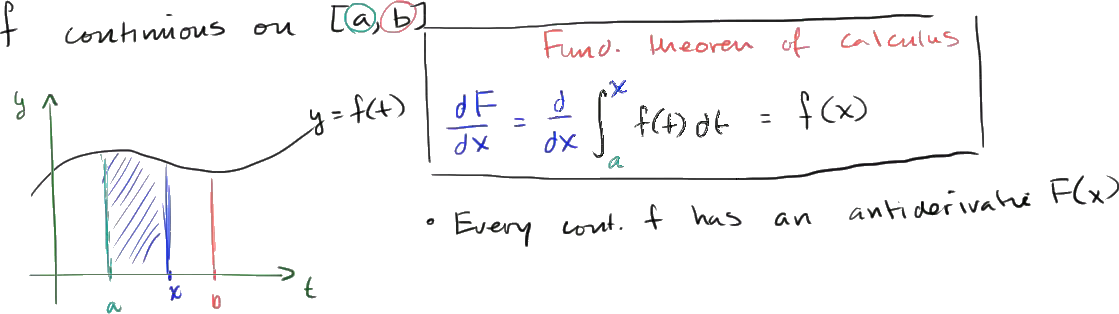 f continuous on [a, b]
Fund. theorem of calculus
y
y = f(t)
dF/dx = d/dx ∫_a^x f(t) dt = f(x)
• Every cont. f has an antiderivative F(x)
t
a x b